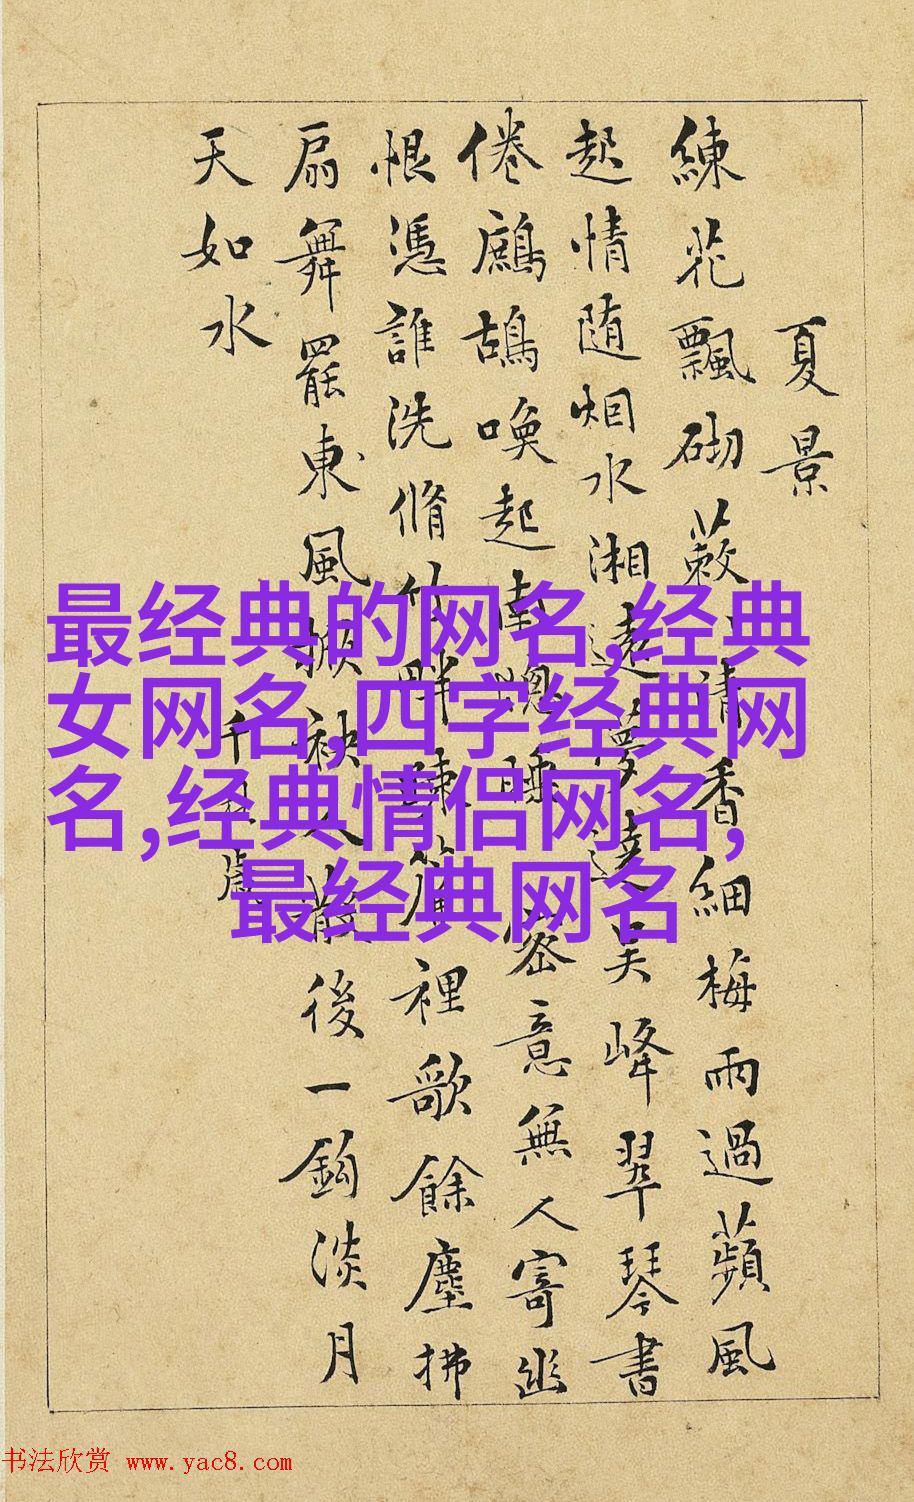 夏景
練花飄砌蔌〻清香細梅雨過蘋風
起情随烟水湘遠夢遶吳峰翠琴書
倦鷓鴣喚起南窓睡密意無人寄幽
恨憑誰洗脩竹畔踈簾裡歌餘塵拂
扇舞罷東風掀袂人散後一鈎淡月
天如水
千秋歲
最经典的网名,经典
女网名,四字经典网
名,经典情侣网名,
最经典网名
书法欣赏 www.yac8.com